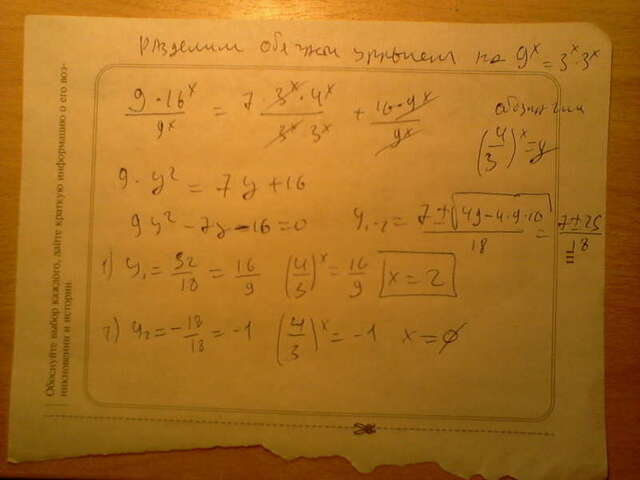 разделим обе части уравнения на 9^x = 3^x·3^x
9·16^x/9^x = 7·3^x·4^x/3^x·3^x + 16·9^x/9^x
обозначим
(4/3)^x = y
9·y² = 7y + 16
9y² - 7y - 16 = 0   y₁,₂ = 7±√49-4·9·16/18 = 7±25/18
1) y₁ = 32/18 = 16/9   (4/3)^x = 16/9   x = 2
2) y₂ = -18/18 = -1   (4/3)^x = -1   x = ∅
Обоснуйте выбор каждого, дайте краткую информацию о его воз-
никновении и истории